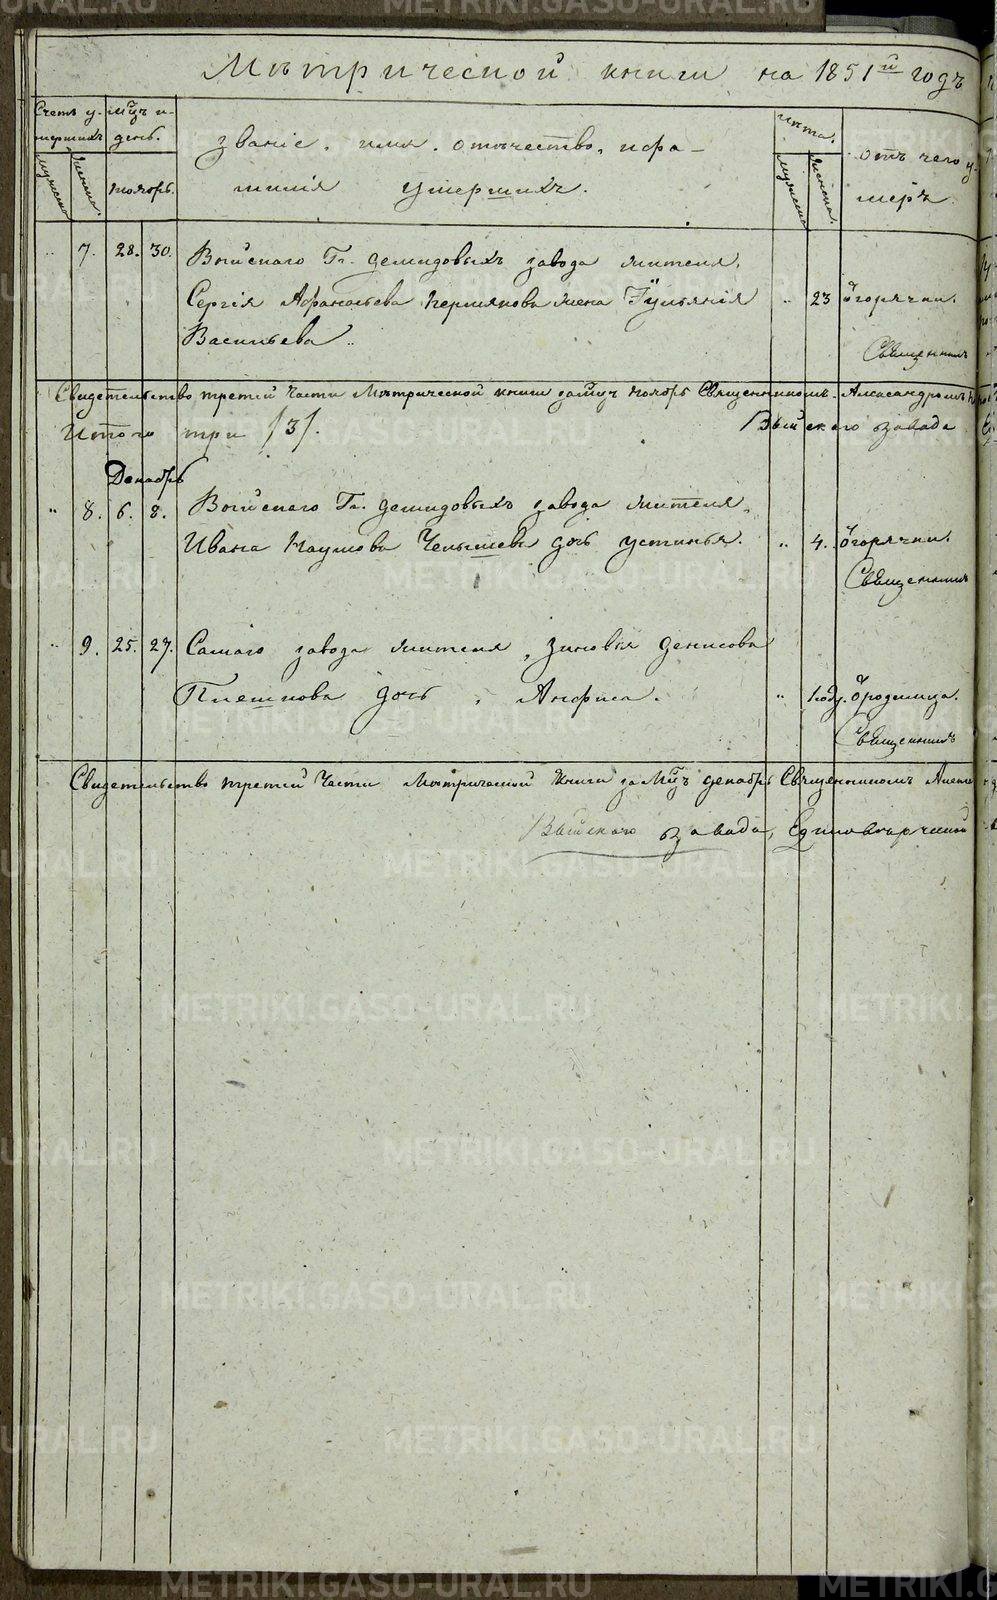 Мѣтрической книги на 1851й годъ
Счетъ у- Мцъ и
мершихъ день.
Мужеска Женска Ноябрь
званіе. имя. отечество. ифа-
милія умершихъ.
лѣта.
Мужеска Женска.
отъ чего у-
меръ.
7. 28. 30. Выйскаго Гг. Демидовыхъ завода жителя,
Сергія Афанасьева Пермякова жена Іульянія " 23 ѿгорячки.
Васильева..
Священникъ
Свидетельство третей части Мѣтрической книги замцъ Ноябрь Священникомъ Александромъ
Итого три /3/. Выйскаго завода
Декабрь
" 8. 6. 8. Выйскаго Гг. Демидовыхъ завода жителя,
Ивана Наумова дочь устинья. " 4. ѿгорячки.
Священникъ
" 9. 25. 27. Самаго завода жителя, Зиновья Денисова
Плешкова дочь, Анфиса. " 1году. ѿродимца.
Священникъ
Свидетельство третей Части Мѣтрической Книги за Мцъ декабрь Священникомъ
Выйскаго завода, Единовѣрческой
METRIKI.GASO-URAL.RU